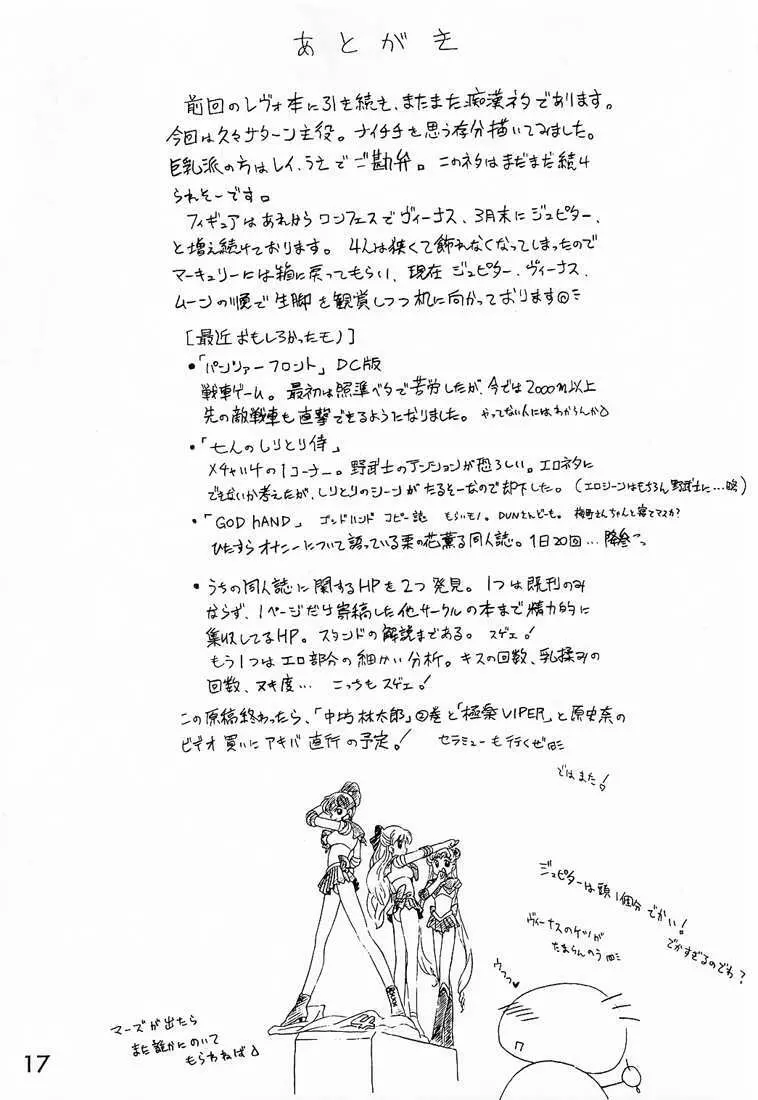 あとがき
前回のレヴォ本に引き続き、またまた痴漢ネタであります。
今回は久々サターン主役。ナイチチを思う存分描いてみました。
巨乳派の方はレイ、うえでご勘弁。このネタはまだまだ続け
られそーです。
フィギュアはあれからワンフェスでヴィーナス、3月末にジュピター、
と増え続けております。4人は狭くて飾れなくなってしまったので
マーキュリーには箱に戻ってもらい、現在ジュピター、ヴィーナス、
ムーンの順で生脚を観賞しつつ机に向かっております
[最近おもしろかったモノ]
•「パンツァーフロント」DC版
戦車ゲーム。最初は照準ベタで苦労したが、今では2000m以上
先の敵戦車も直撃できるようになりました。やってない人にはわからんか
•「七人のしりとり侍」
メチャイケの1コーナー。野武士のテンションが恐ろしい。エロネタに
できないか考えたが、しりとりのシーンがたるそーなので却下した。(エロシーンはもちろん野武士に…略)
•「GOD HAND」ゴッドハンド コピー誌 もらいモノ。DUNさんどーも。
ひたすらオナニーについて語っている栗の花薫る同人誌。1日20回…降参
•うちの同人誌に関するHPを2つ発見。1つは既刊のみ
ならず、1ページだけ寄稿した他サークルの本まで精力的に
集収してるHP。スタンドの解説まである。スゲェ!
もう1つはエロ部分の細かい分析。キスの回数、乳揉みの
回数、ヌキ度… こっちもスゲェ!
この原稿終わったら、「中坊林太郎」②巻と「極楽VIPER」と原史奈の
ビデオ買いにアキバ直行の予定!セラミューも行くぜ
ではまた!
ジュピターは頭1個分でかい!
でかすぎるのでわ?
ヴィーナスのケツが
たまらんのう
ウフッ
マーズが出たら
また誰かにのいて
もらわねば
17